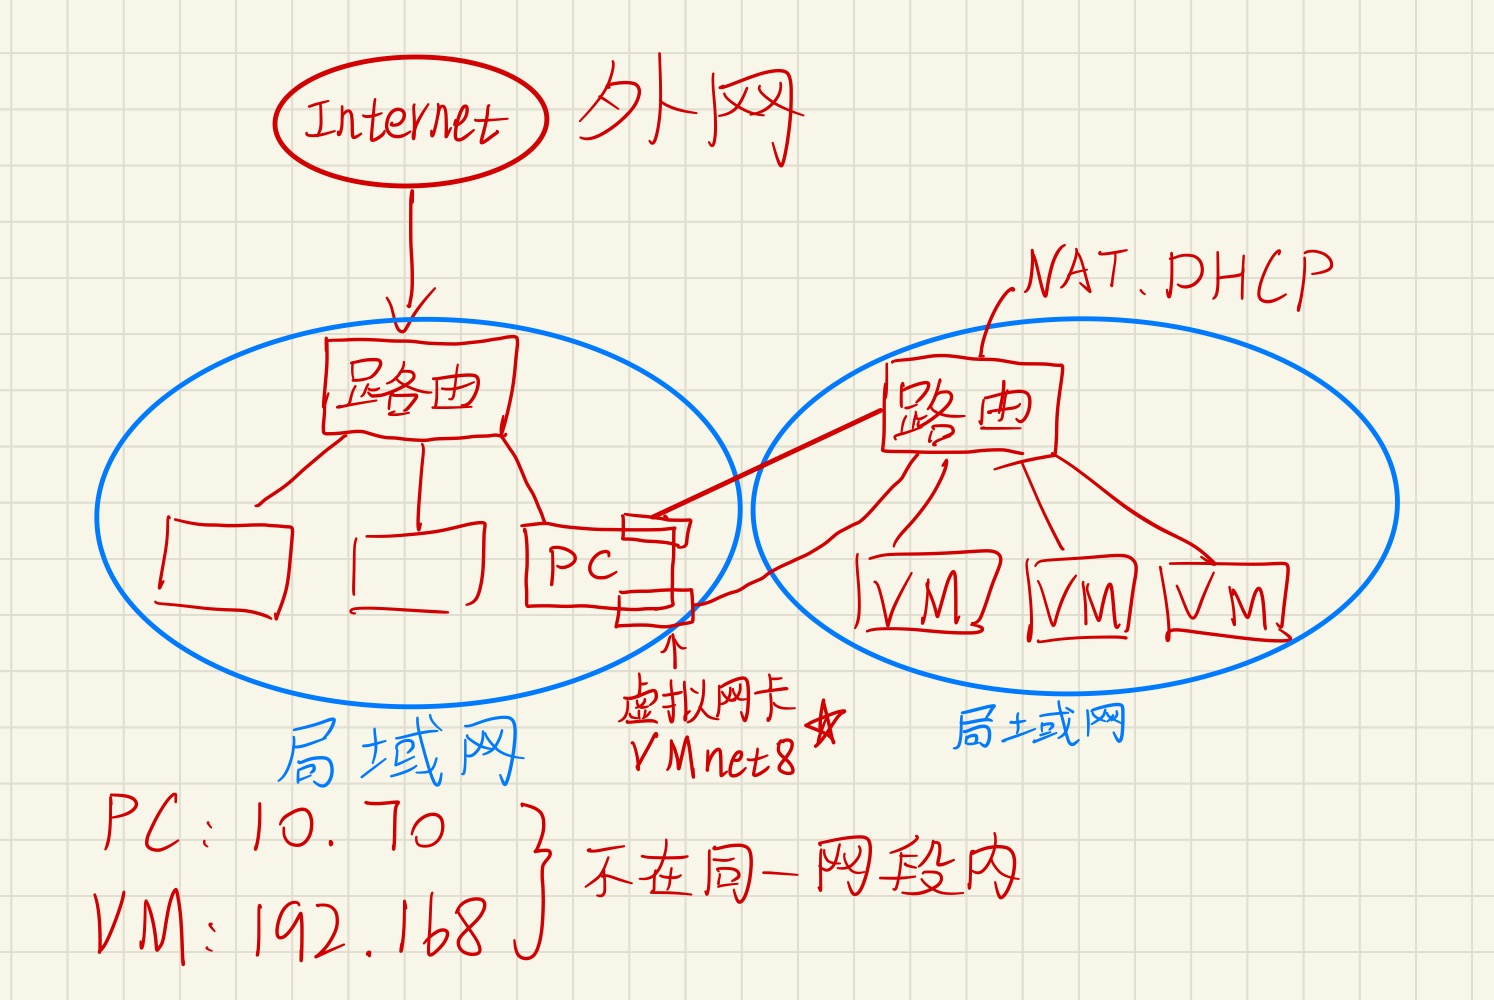 Internet 外网
NAT.DHCP
路由
路由
PC
VM VM VM
虚拟网卡
VMnet8
局域网
局域网
PC: 10.70
VM: 192.168
不在同一网段内